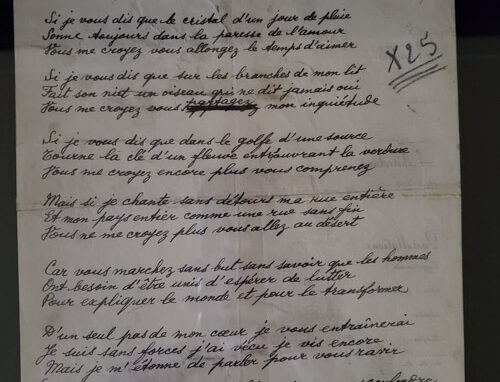 Si je vous dis que le cristal d'un jour de pluie
Sonne toujours dans la paresse de l'amour
Vous me croyez vous allongez le temps d'aimer
X25
Si je vous dis que sur les branches de mon lit
Fait son nid un oiseau qui ne dit jamais oui
Vous me croyez vous partagez mon inquiétude
Si je vous dis que dans le golfe d'une source
Tourne la clé d'un fleuve entrouvrant la verdure
Vous me croyez encore plus vous comprenez
Mais si je chante sans détours ma rue entière
Et mon pays entier comme une rue sans fin
Vous ne me croyez plus vous allez au désert
Car vous marchez sans but sans savoir que les hommes
Ont besoin d'être unis d'espérer de lutter
Pour expliquer le monde et pour le transformer
D'un seul pas de mon cœur je vous entraînerai
Je suis sans forces j'ai vécu je vis encore
Mais je m'étonne de parler pour vous ravir